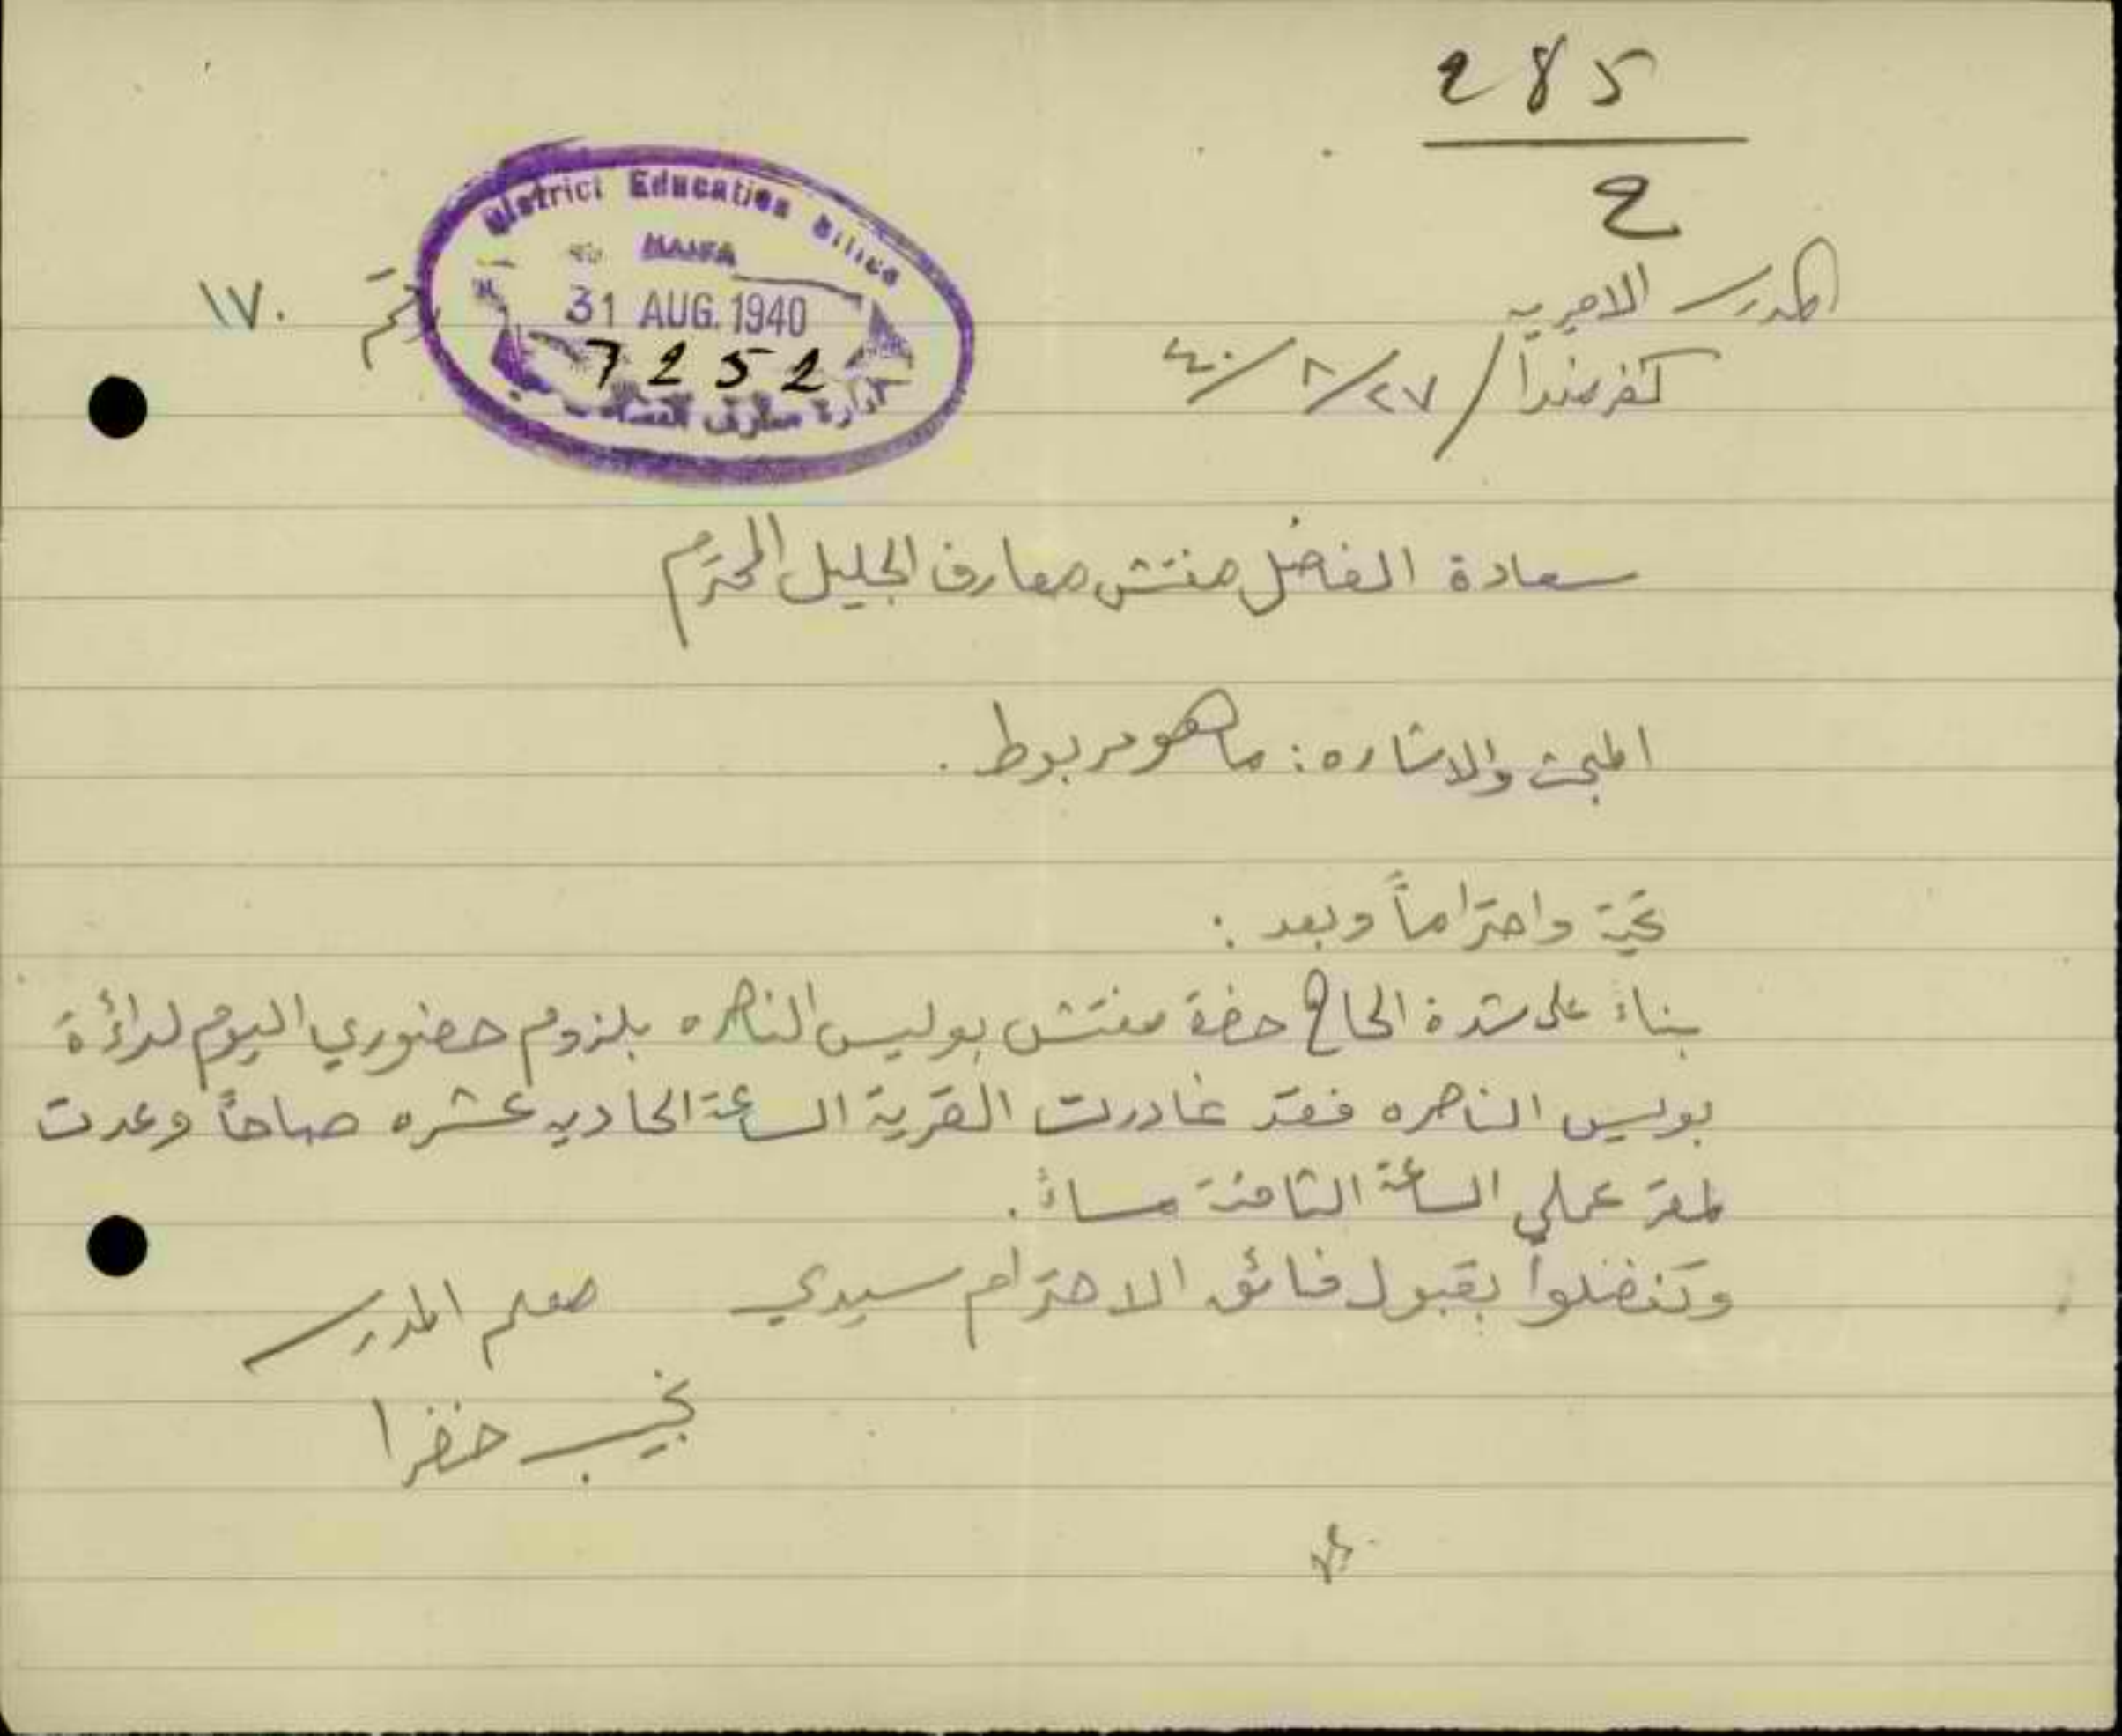 285
2
المدرسه الاميريه
كفرمندا / ٢٧/ ٨/ ٤٠
١٧٠
District Education Office
HAIFA
31 AUG. 1940
7252
ادارة معارف
سعادة الفاضل مفتش معارف الجليل المحترم
المبحث والاشاره : ما هو مربوط .
تحية واحتراماً وبعد :
بناءً على شدة الحاح حضرة مفتش بوليس الناصره بلزوم حضوري اليوم لدائرة
بوليس الناصره فقد غادرت القرية الساعة الحاديه عشره صباحاً وعدت
لمقر عملي الساعة الثامنة مساءً .
وتفضلوا بقبول فائق الاحترام سيدي
معلم المدرسه
نجيب خضرا